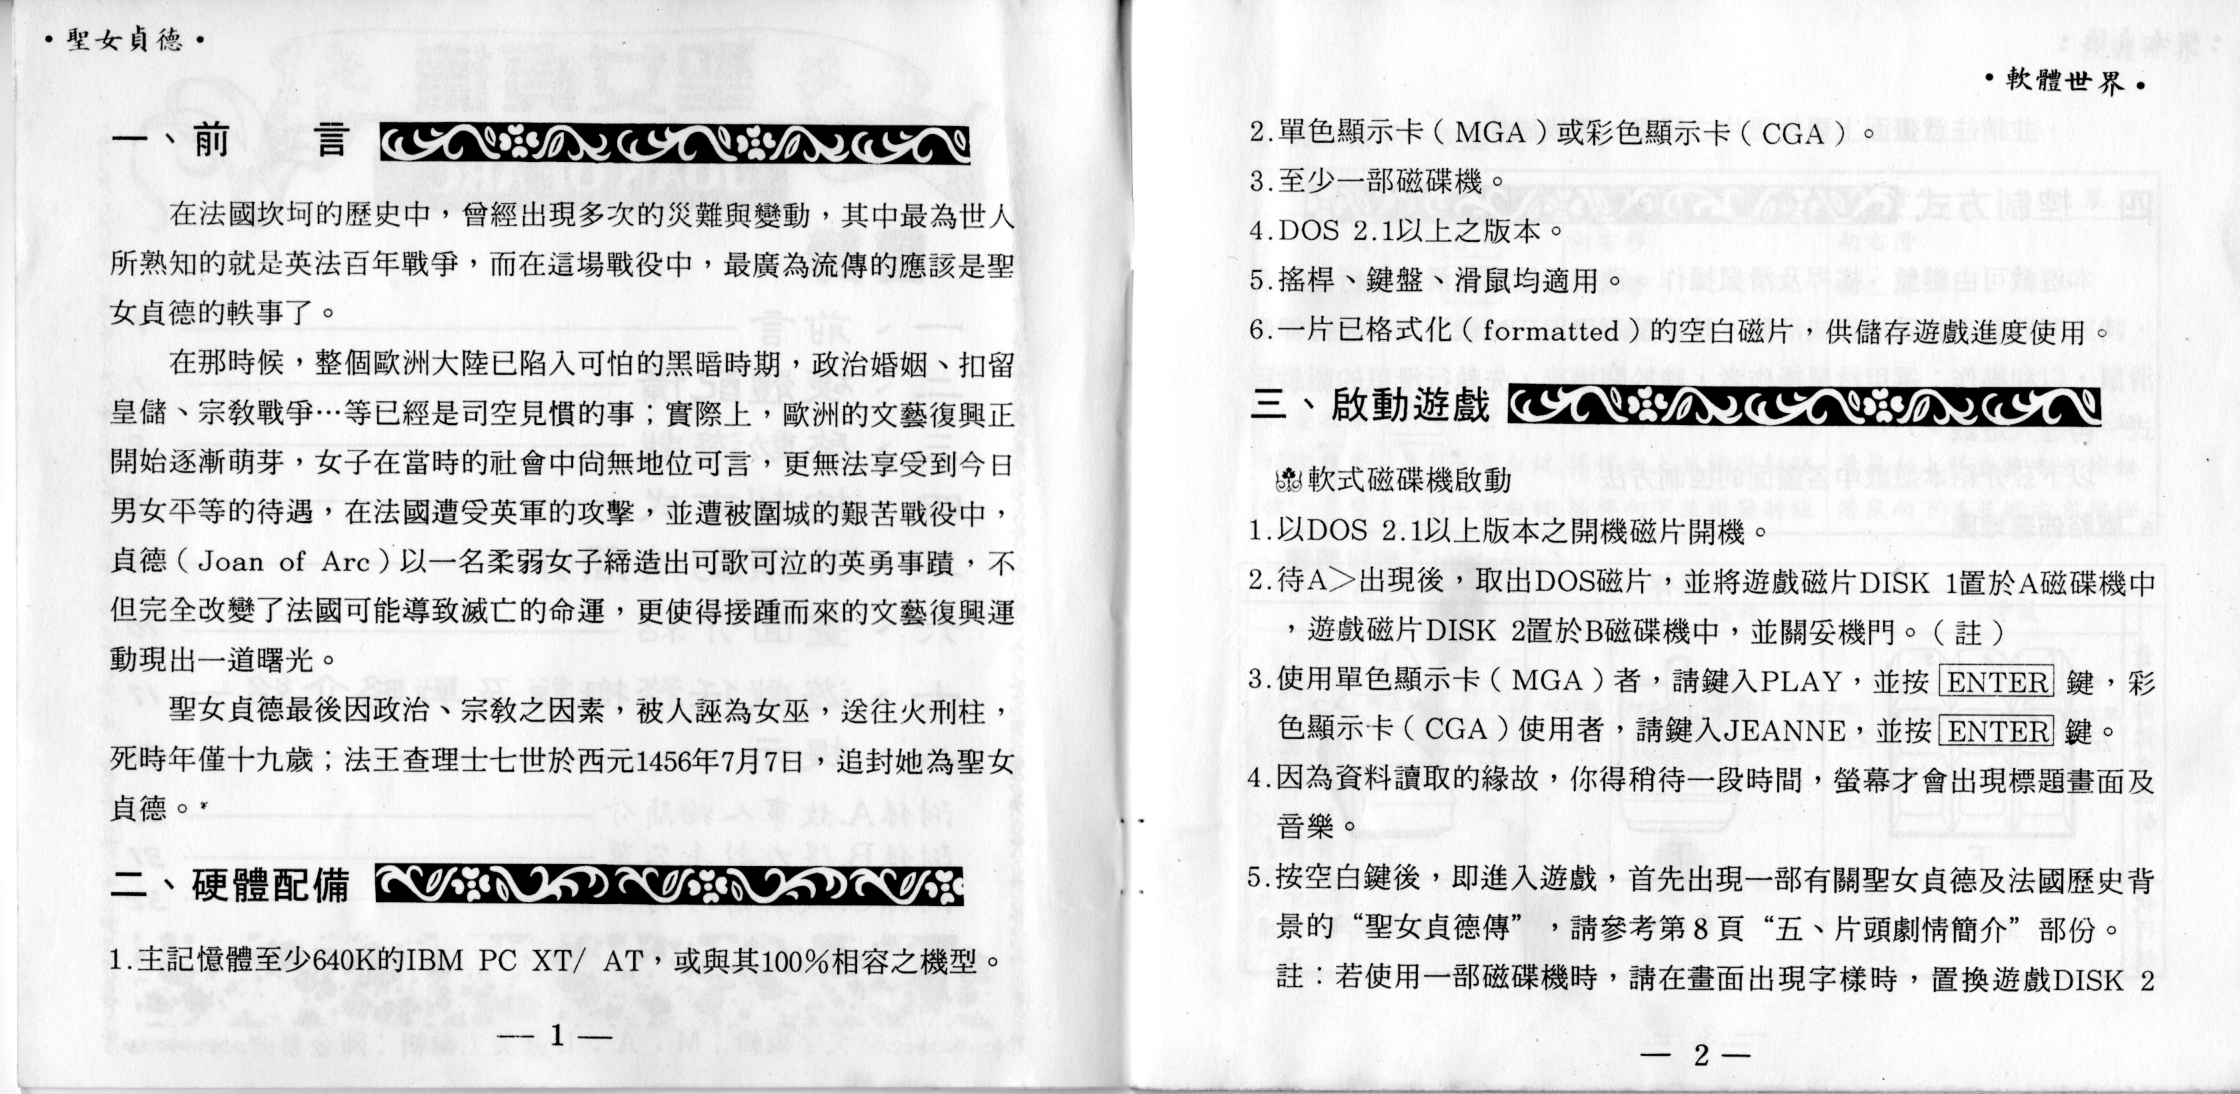 •聖女貞德•
一、前　　言
在法國坎坷的歷史中，曾經出現多次的災難與變動，其中最為世人
所熟知的就是英法百年戰爭，而在這場戰役中，最廣為流傳的應該是聖
女貞德的軼事了。
在那時候，整個歐洲大陸已陷入可怕的黑暗時期，政治婚姻、扣留
皇儲、宗教戰爭…等已經是司空見慣的事；實際上，歐洲的文藝復興正
開始逐漸萌芽，女子在當時的社會中尚無地位可言，更無法享受到今日
男女平等的待遇，在法國遭受英軍的攻擊，並遭被圍城的艱苦戰役中，
貞德（Joan of Arc）以一名柔弱女子締造出可歌可泣的英勇事蹟，不
但完全改變了法國可能導致滅亡的命運，更使得接踵而來的文藝復興運
動現出一道曙光。
聖女貞德最後因政治、宗教之因素，被人誣為女巫，送往火刑柱，
死時年僅十九歲；法王查理士七世於西元1456年7月7日，追封她為聖女
貞德。
二、硬體配備
1.主記憶體至少640K的IBM PC XT/ AT，或與其100%相容之機型。
— 1 —
•軟體世界•
2.單色顯示卡（MGA）或彩色顯示卡（CGA）。
3.至少一部磁碟機。
4.DOS 2.1以上之版本。
5.搖桿、鍵盤、滑鼠均適用。
6.一片已格式化（formatted）的空白磁片，供儲存遊戲進度使用。
三、啟動遊戲
軟式磁碟機啟動
1.以DOS 2.1以上版本之開機磁片開機。
2.待A＞出現後，取出DOS磁片，並將遊戲磁片DISK 1置於A磁碟機中
，遊戲磁片DISK 2置於B磁碟機中，並關妥機門。（註）
3.使用單色顯示卡（MGA）者，請鍵入PLAY，並按 ENTER 鍵，彩
色顯示卡（CGA）使用者，請鍵入JEANNE，並按 ENTER 鍵。
4.因為資料讀取的緣故，你得稍待一段時間，螢幕才會出現標題畫面及
音樂。
5.按空白鍵後，即進入遊戲，首先出現一部有關聖女貞德及法國歷史背
景的“聖女貞德傳”，請參考第8頁“五、片頭劇情簡介”部份。
註：若使用一部磁碟機時，請在畫面出現字樣時，置換遊戲DISK 2
— 2 —